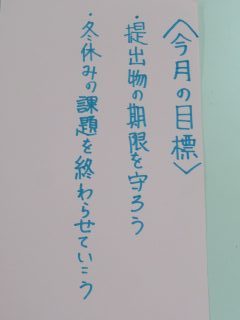 〈今月の目標〉
・提出物の期限を守ろう
・冬休みの課題を終わらせていこう